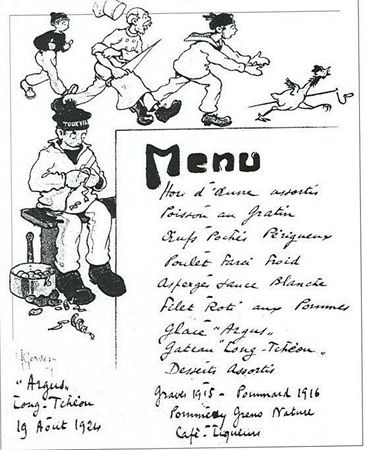 Menu
Hors d'Œuvre assortis
Poisson au Gratin
Œufs Pochés Périgueux
Poulet Farci Froid
Asperges Sauce Blanche
Filet Roti aux Pommes
Glace "Argus"
Gateau "Tong-Tchéou"
Desserts Assortis
Graves 1915 - Pommard 1916
Pommery Greno Nature
Café - Liqueurs
"Argus"
Tong-Tchéou
19 Août 1924